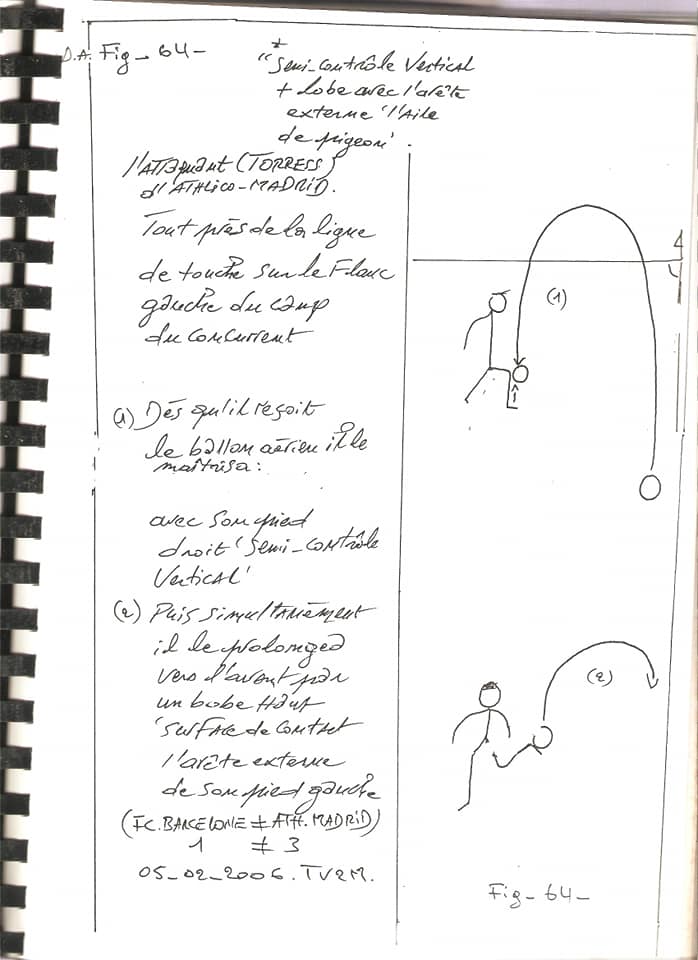 D.A. Fig - 64 -
"Semi-contrôle Vertical
+ Lobe avec l'arête
externe 'l'Aile
de pigeon'.
l'ATTAquant (TORRESS)
d'ATHLico-MADRID.
Tout près de la ligne
de touche sur le Flanc
gauche du camp
du concurrent
(1) Dès qu'il reçoit
le ballon aérien il le
maîtrisa :
avec son pied
droit 'Semi-contrôle
Vertical'
(2) Puis simultanément
il le prolongea
vers l'avant par
un bobe Haut
'surface de contact
l'arête externe
de son pied gauche
(FC. BARCELONE ≠ ATH. MADRID)
1 ≠ 3
05-02-2006. TV2M.
(1)
(2)
Fig - 64 -